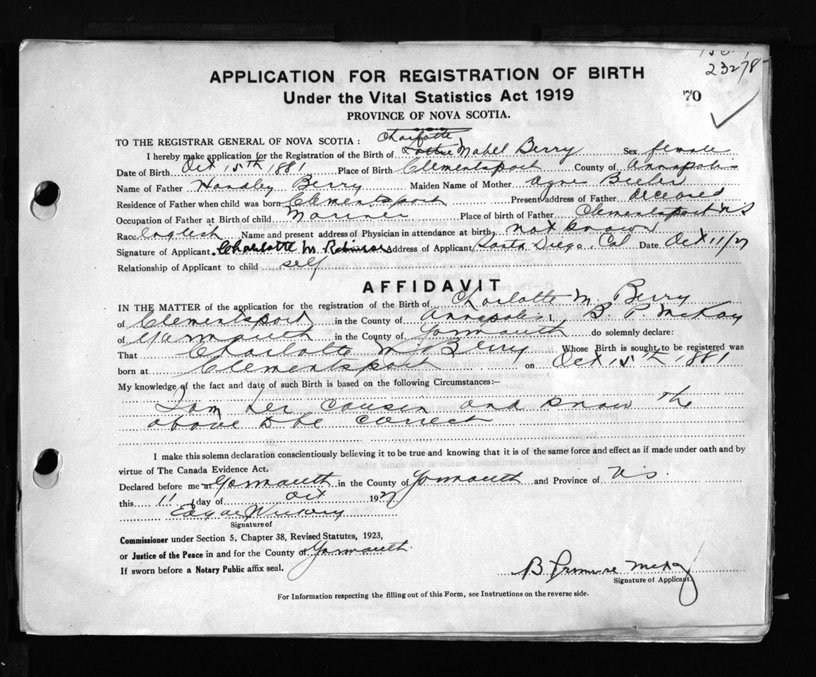 23278
APPLICATION FOR REGISTRATION OF BIRTH
Under the Vital Statistics Act 1919
70
PROVINCE OF NOVA SCOTIA.
Charlotte
TO THE REGISTRAR GENERAL OF NOVA SCOTIA :
I hereby make application for the Registration of the Birth of Mabel Berry Sex female
Date of Birth Oct 15th 1881 Place of Birth Clementsport County of Annapolis
Name of Father Handley Berry Maiden Name of Mother Agnes
Residence of Father when child was born Clementsport Present address of Father deceased
Occupation of Father at Birth of child Mariner Place of birth of Father Clementsport N S
Race English Name and present address of Physician in attendance at birth not known
Signature of Applicant Charlotte M. Address of Applicant Santa Diego Cal Date Oct 11/27
Relationship of Applicant to child self
AFFIDAVIT
IN THE MATTER of the application for the registration of the Birth of Charlotte M. Berry
of Clementsport in the County of Annapolis I, B. P. McKay
of Yarmouth in the County of Yarmouth do solemnly declare:
That Charlotte M Berry Whose Birth is sought to be registered was
born at Clementsport on Oct 15th 1881
My knowledge of the fact and date of such Birth is based on the following Circumstances:—
I am her cousin and know the
above to be correct
I make this solemn declaration conscientiously believing it to be true and knowing that it is of the same force and effect as if made under oath and by
virtue of The Canada Evidence Act.
Declared before me at Yarmouth in the County of Yarmouth and Province of N.S.
this 11 day of Oct 1927
Edgar
Signature of
Commissioner under Section 5, Chapter 38, Revised Statutes, 1923,
or Justice of the Peace in and for the County of Yarmouth.
If sworn before a Notary Public affix seal.
B. Primrose McKay
Signature of Applicant.
For Information respecting the filling out of this Form, see Instructions on the reverse side.